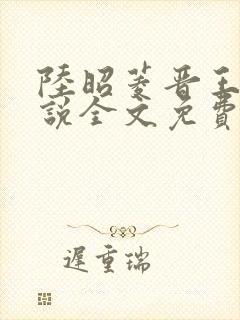 陸昭菱晉王
說全文免費
遲重瑞